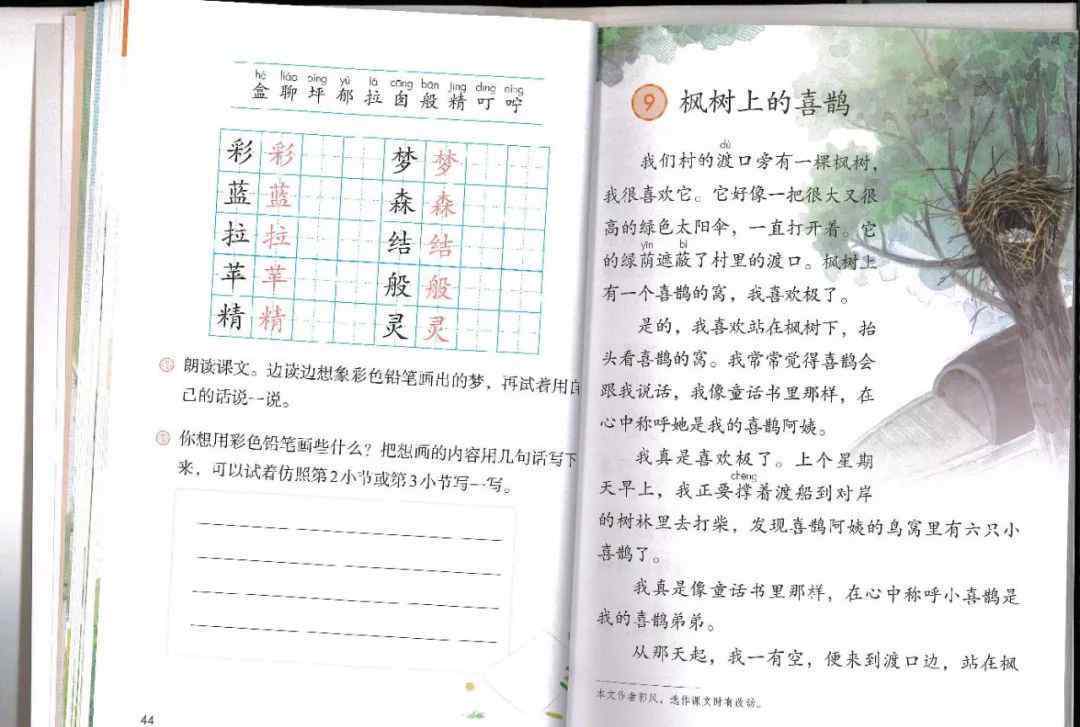 hé liáo píng yù lā cōng bān jīng dīng níng
盒 聊 坪 郁 拉 囱 般 精 叮 咛
彩 彩 梦 梦
蓝 蓝 森 森
拉 拉 结 结
苹 苹 般 般
精 精 灵 灵
朗读课文。边读边想象彩色铅笔画出的梦，再试着用自
己的话说一说。
你想用彩色铅笔画些什么？把想画的内容用几句话写下
来，可以试着仿照第2小节或第3小节写一写。
44
9 枫树上的喜鹊
dù
我们村的渡口旁有一棵枫树，
我很喜欢它。它好像一把很大又很
高的绿色太阳伞，一直打开着。它
yīn bì
的绿荫遮蔽了村里的渡口。枫树上
有一个喜鹊的窝，我喜欢极了。
是的，我喜欢站在枫树下，抬
头看喜鹊的窝。我常常觉得喜鹊会
跟我说话，我像童话书里那样，在
心中称呼她是我的喜鹊阿姨。
我真是喜欢极了。上个星期
chēng
天早上，我正要撑着渡船到对岸
的树林里去打柴，发现喜鹊阿姨的鸟窝里有六只小
喜鹊了。
我真是像童话书里那样，在心中称呼小喜鹊是
我的喜鹊弟弟。
从那天起，我一有空，便来到渡口边，站在枫
本文作者郭风，选作课文时有改动。